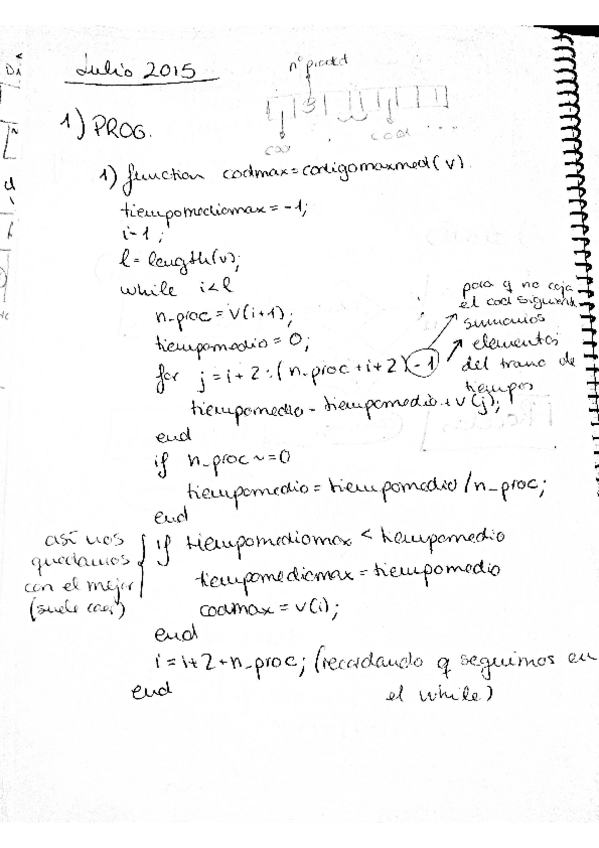 Julio 2015
nº product
cod
cod ...
1) PROG.
1) function codmax=codigomaxmed(v)
tiempomediomax=-1;
i=1;
l=length(v);
while i<l
n_proc=v(i+1);
tiempomedio=0;
for j=i+2:(n_proc+i+2)-1
tiempomedio=tiempomedio+v(j);
end
if n_proc~=0
tiempomedio=tiempomedio/n_proc;
end
if tiempomediomax < tiempomedio
tiempomediomax=tiempomedio
codmax=v(i);
end
i=i+2+n_proc; (recordando q seguimos en
el while)
end
para q no coja
el cod siguiente
sumamos
elementos
del tramo de
tiempos
así nos
quedamos
con el mejor
(suele caer)